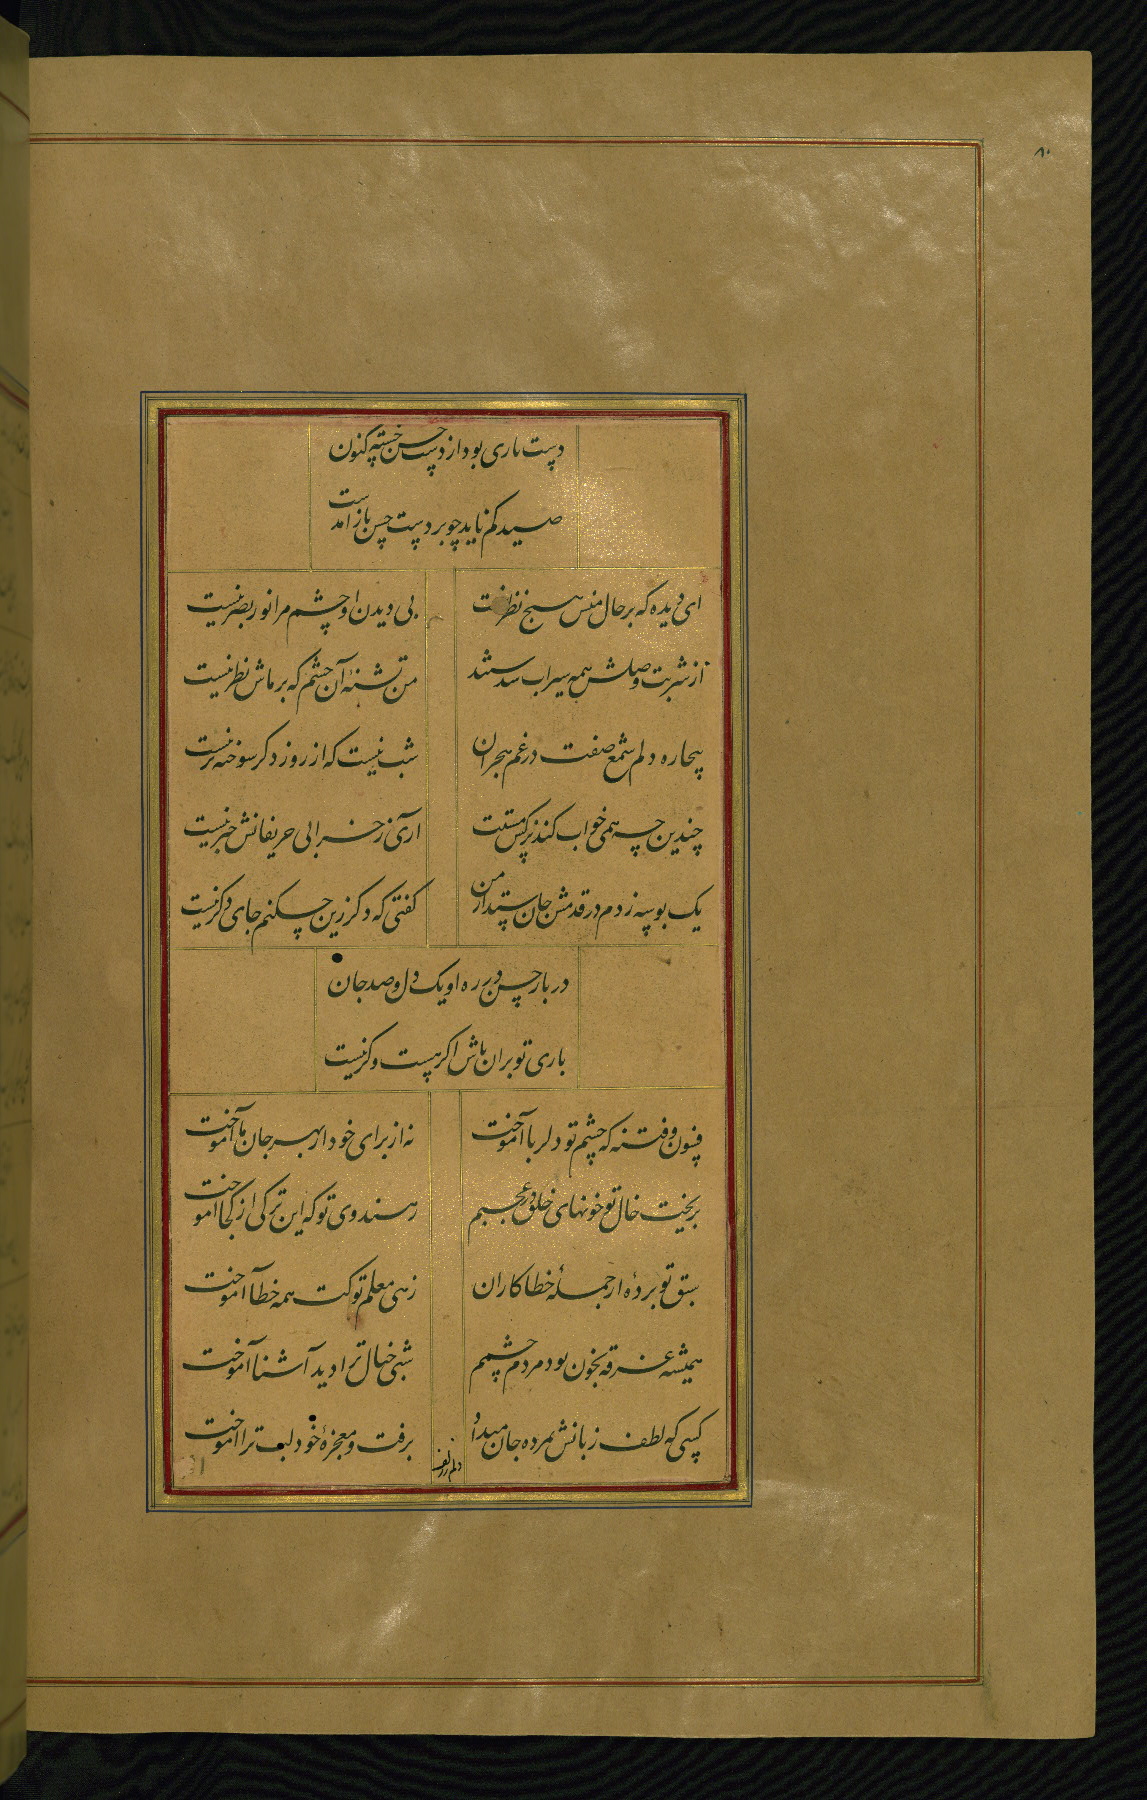 ۸۰
دست یاری بود از دست حسن خسته کنون
صید کم ناید چو بر دست حسن باز آمدست
ای دیده که بر حال منش هیچ نظر نیست بی دیدن او چشم مرا نور بصر نیست
از شربت وصلش همه سیراب شدستند من تشنهٔ آن چشم که بر ماش نظر نیست
بیچاره دلم شمع صفت در غم هجران شب نیست که از روز دگر سوخته‌تر نیست
چندین چه همی خواب کند نرگس مستت آری ز خرابی حریفانش خبر نیست
یک بوسه زدم در قدمش جان ستد از من گفتی که دگر زین چکنم جای دگر نیست
در باز حسن در ره او یک دل و صد جان
باری تو بران باش اگر هست وگر نیست
فسون و فتنه که چشم تو دلربا آموخت نه از برای خود از بهر جان ما آموخت
بریخت خال تو خونهای خلق و در عجبم ز هندوی تو که این ترکی از کجا آموخت
سبق تو بردهٔ از جملهٔ خطاکاران زهی معلم تو کت همه خطا آموخت
همیشه غرقه بخون بود مردم چشمم شبی خیال ترا دید آشنا آموخت
کسی که لطف زبانش بمرده جان میداد برفت و معجزهٔ خود لبت ترا آموخت
دلم ز زلف